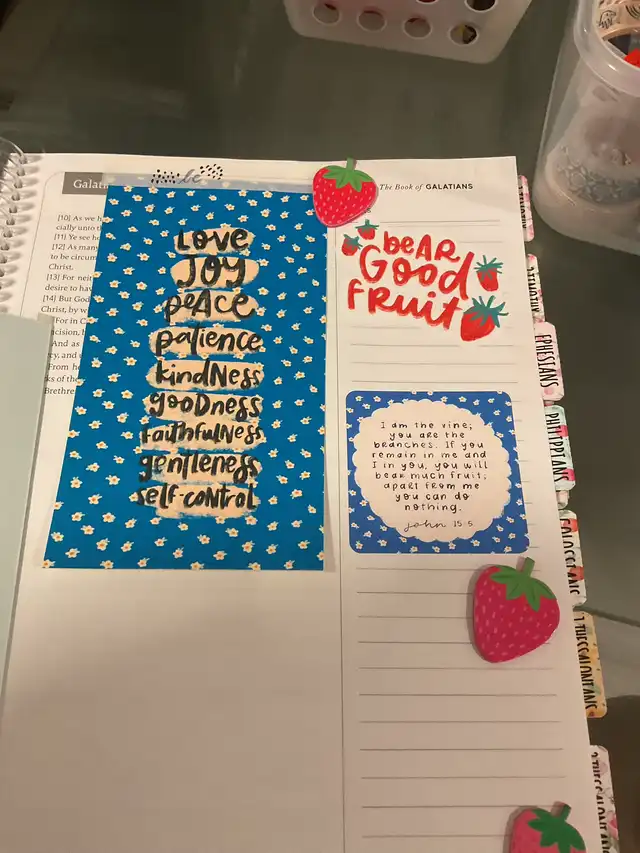 Galat
The Book of GALATIANS
[10] As we h
cially unto t
[11] Ye see h
[12] As many
to be circum
Christ.
[13] For neit
desire to hav
[14] But God
Christ, by w
For in C
cision,
And as
cy, and
From he
ks of the
Brethre
LOVE
JOY
peace
patience
kindNess
gooDness
faithfulNess
gentleness
self-control
beAR
Good
fRuit
I am the vine;
you are the
branches. If you
remain in me and
I in you, you will
bear much fruit;
apart from me
you can do
nothing.
john 15:5
EPHESIANS
PHILIPPIANS
COLOSSIANS
1 THESSALONIANS
2 THESSALONIANS